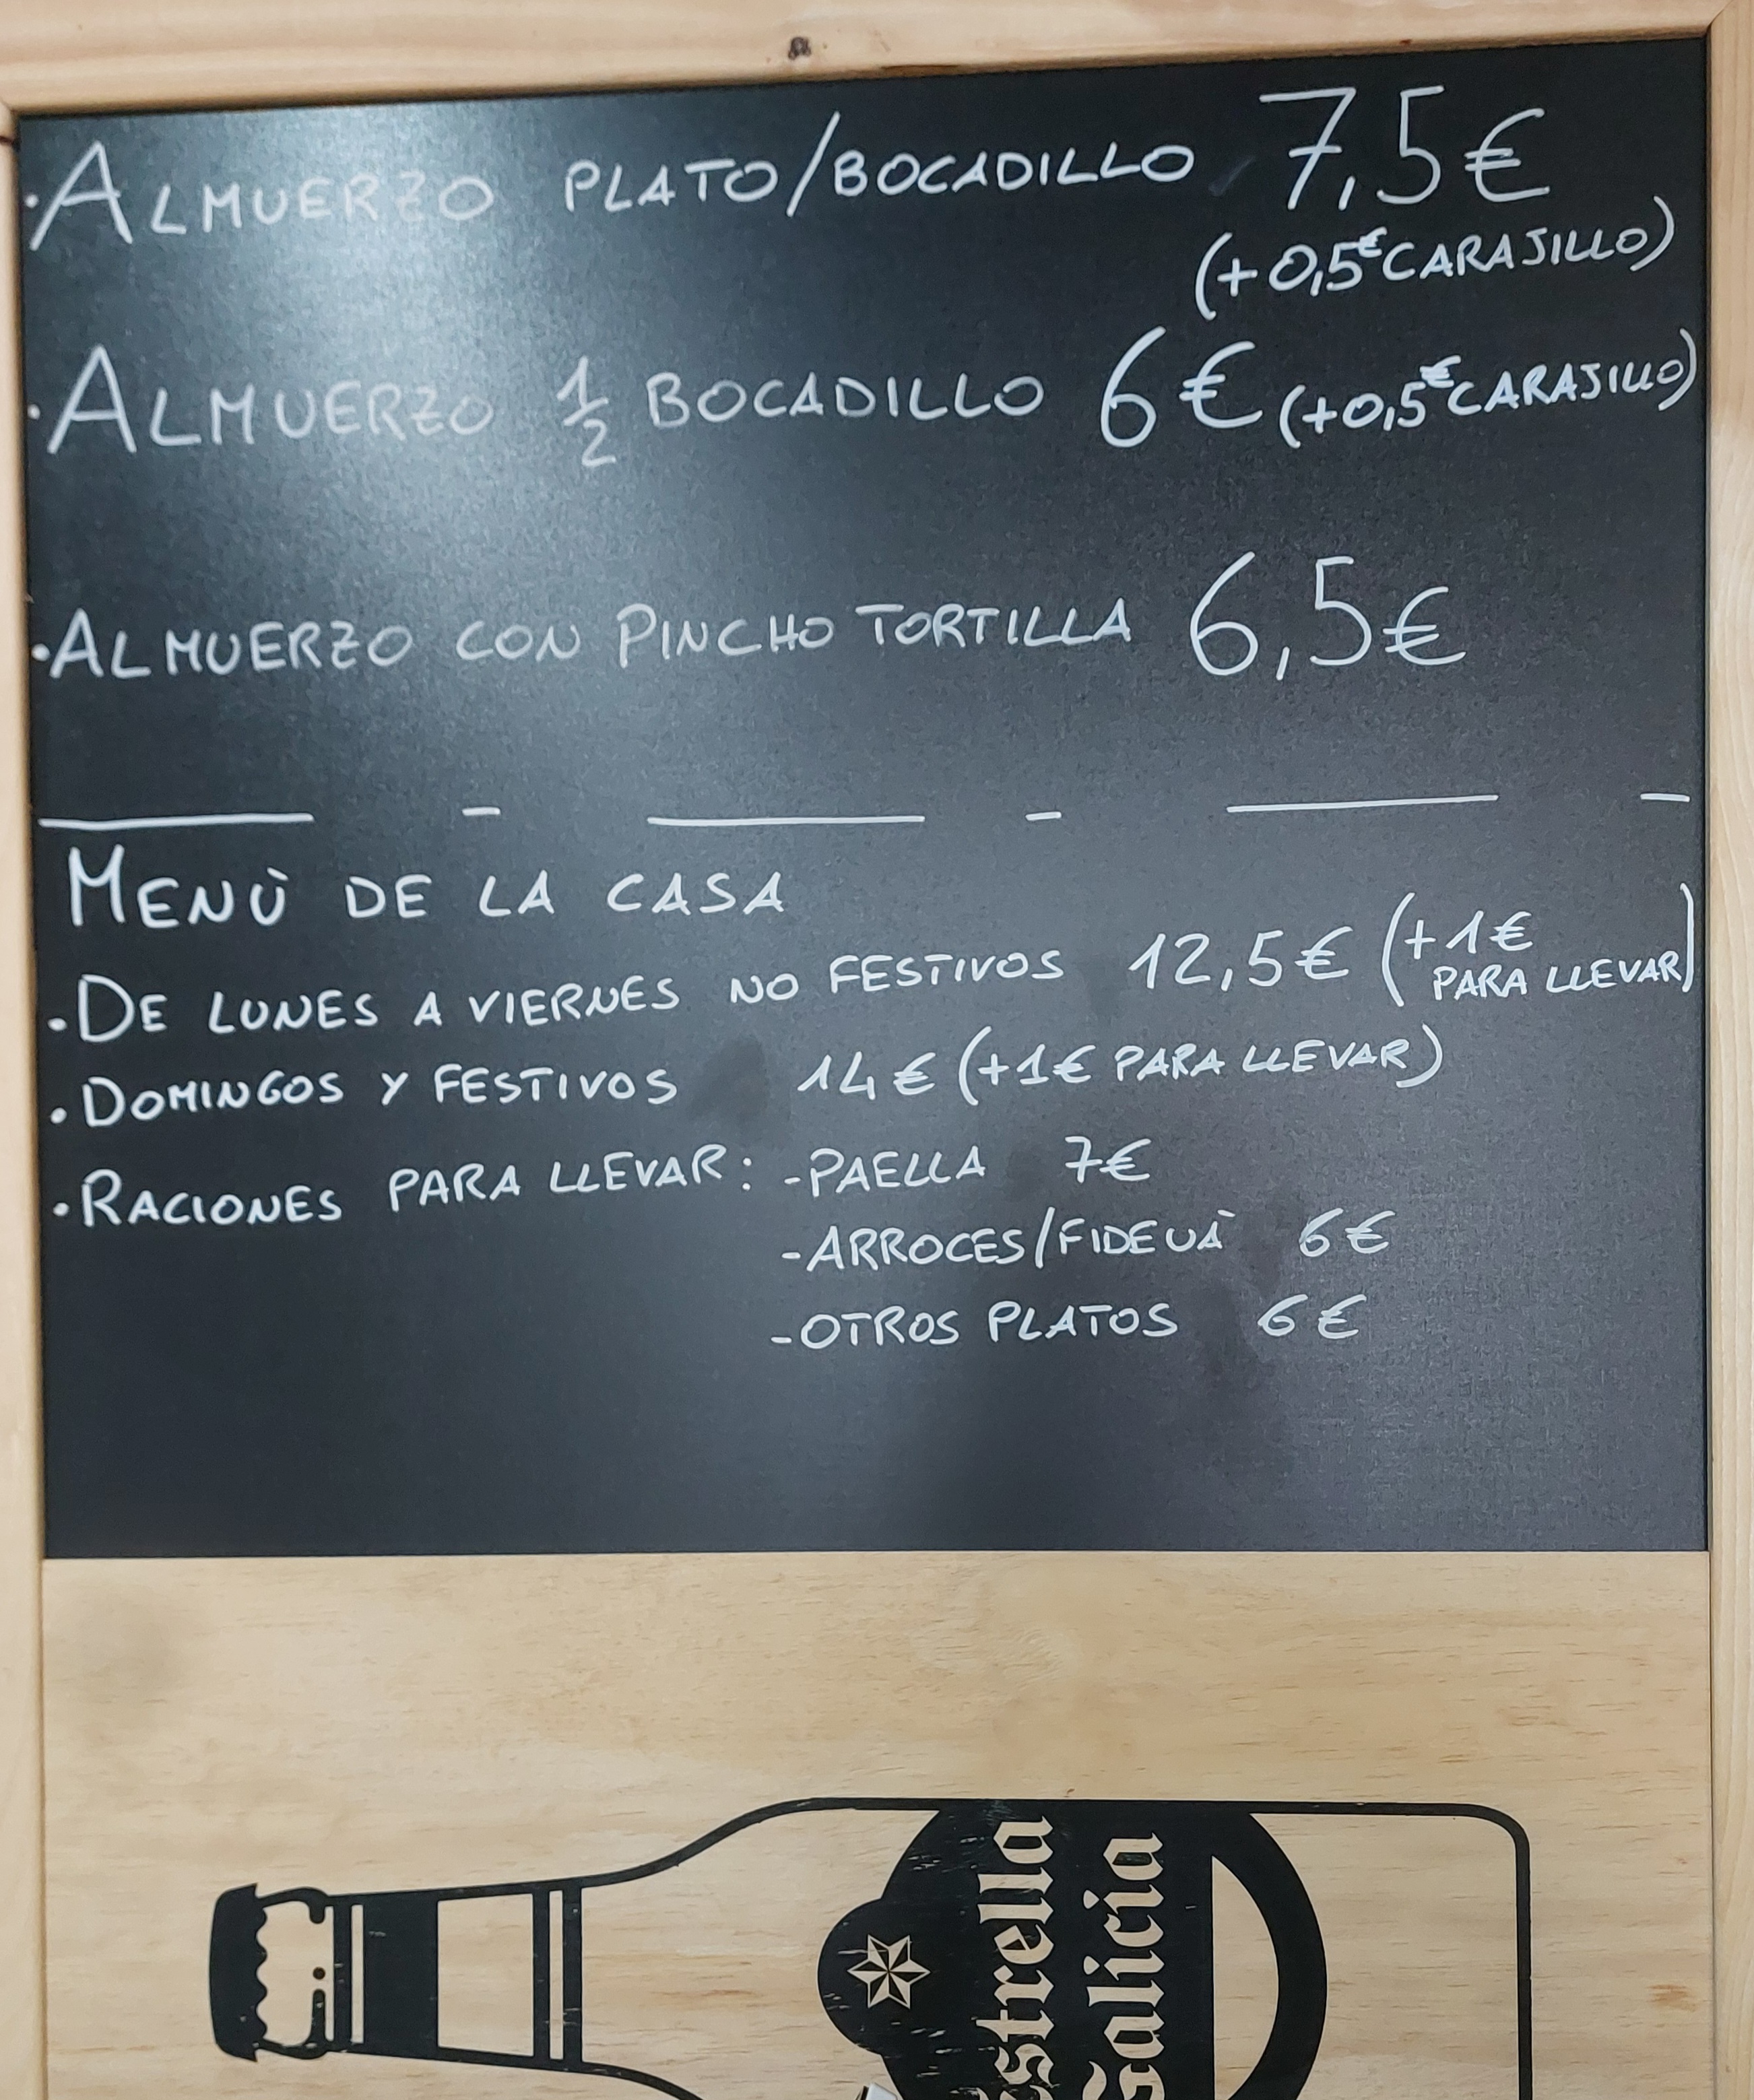 ·ALMUERZO PLATO/BOCADILLO 7,5€
(+0,5€ CARAJILLO)
·ALMUERZO 1/2 BOCADILLO 6€ (+0,5€ CARAJILLO)
·ALMUERZO CON PINCHO TORTILLA 6,5€
MENÙ DE LA CASA
·DE LUNES A VIERNES NO FESTIVOS 12,5€ (+1€
PARA LLEVAR)
·DOMINGOS Y FESTIVOS 14€ (+1€ PARA LLEVAR)
·RACIONES PARA LLEVAR: -PAELLA 7€
-ARROCES/FIDEUÀ 6€
-OTROS PLATOS 6€
Estrella
Galicia